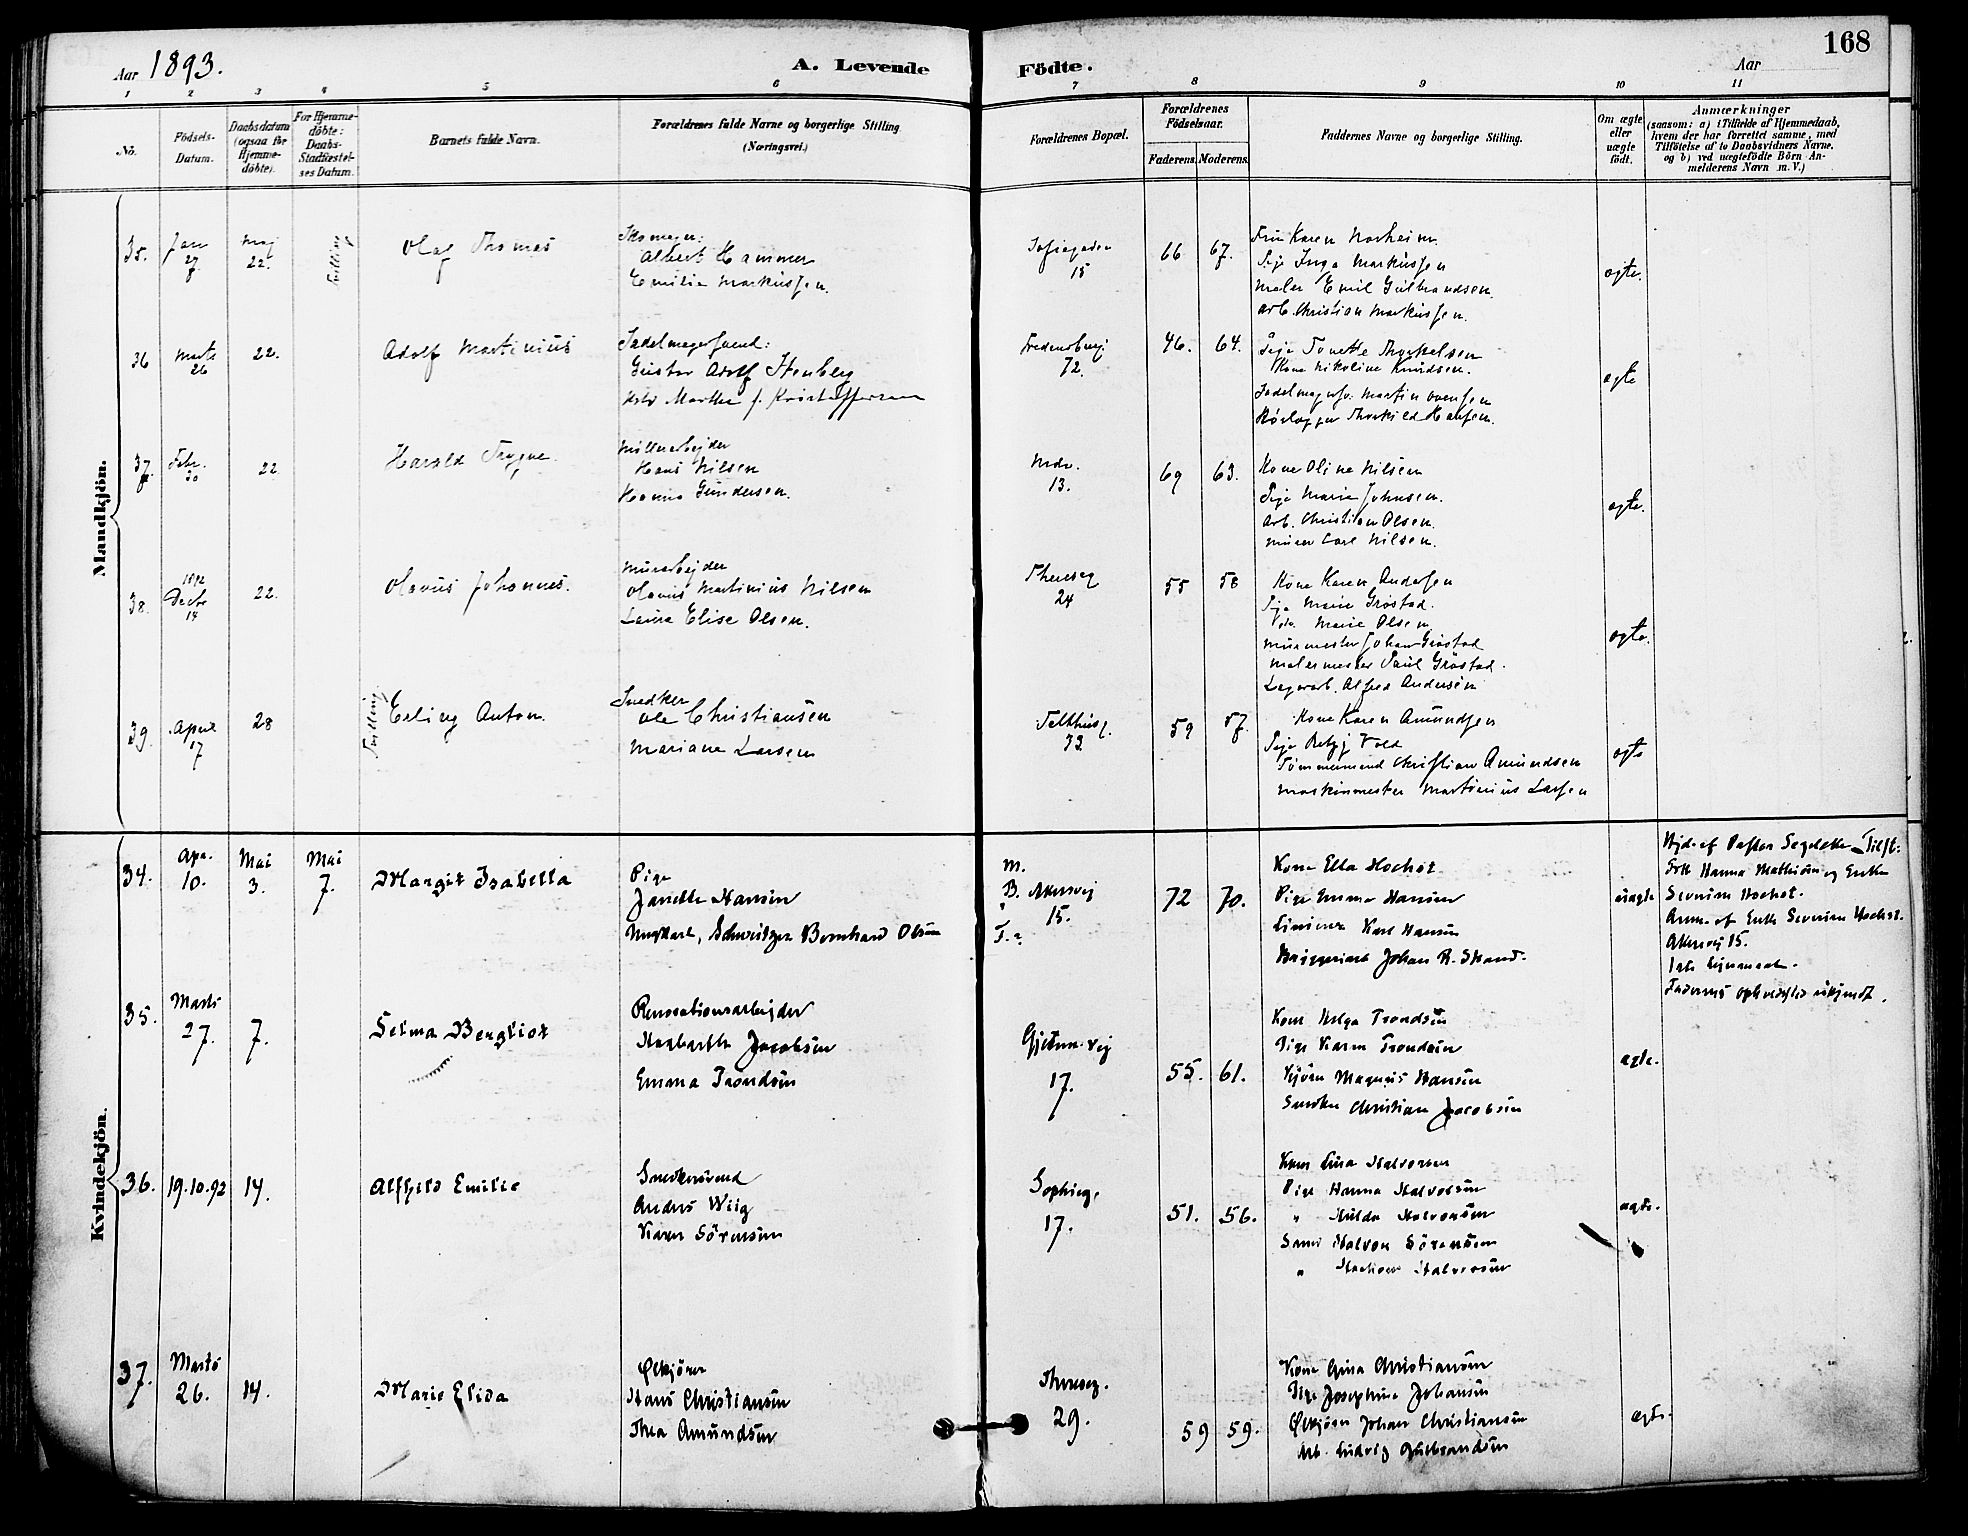 168
Aar 1893.
A. Levende Födte.
Aar
1 2 3 4 5 6 7 8 9 10 11
No.
Födsels-Datum.
Daabsdatum (ogsaa for Hjemmedöbte).
For Hjemmedöbte: Daabs-Stadfæstelses Datum.
Barnets fulde Navn.
Forældrenes fulde Navne og borgerlige Stilling
(Næringsvei.)
Forældrenes Bopæl.
Forældrenes Födselsaar.
Faderens. Moderens.
Faddernes Navne og borgerlige Stilling.
Om ægte eller uægte födt.
Anmærkninger
(saasom: a) i Tilfælde af Hjemmedaab,
hvem der har forrettet samme, med
Tilföielse af to Daabsvidners Navne,
og b) ved uægtefödte Börn An-
melderens Navn m. V.)
Mandkjön.
35. Jan 27 Maj 22.
Olaf Thomas
Albert Hammer
Emilie Markussen.
Sofiegaden 15
66 67.
Frü Karen Norheim.
Pige Inga Markussen
Maler Emil Gulbrandsen.
Arb. Christian Markussen.
ægte.
36 Marts 26 22.
Adolf Martinius
Sadelmagersvend:
Gustav Adolf Stenberg
Martha f. Kristoffersen
72.
46. 64.
Pige Tonette Thorkelsen
Kone Nikoline Knudsen.
Sadelmagersv. Martin
Thorkild Hansen.
ægte
37. Febr. 22
Harald Trygve.
Hans Nilsen
Hanna Gundersen.
13.
69 63.
Kone Oline Nilsen
Pige Marie Johnsen.
Arb. Christian Olsen.
Murer Carl Nilsen.
ægte.
38. 1892 Decbr 14 22.
Olavus Johannes.
Murarbejder
Olavus Martinius Nilsen
Laura Elise Olsen.
Thereseg 24
55 58
Kone Karen Andersen
Pige Marie Gröstad.
Marie Olsen
Murmester Johan Gröstad
Malermester Paul Gröstad.
Lagerarb. Alfred Andersen
ægte.
39. April 17 28
Tvilling
Erling Anton.
Snedker
Ole Christiansen
Mariane Larsen
59 57.
Kone Karen Amundsen
Tömmermand Christian Amundsen
Maskinmester Martinius Larsen
ægte
Kvindekjön.
34. Apr. 10. Mai 3. Mai 7.
Margit Isabella
Pige
Janette Hansen
Ungkarl, Schweitzer Bernhard Olsen
M.
B. Akersvej 15.
F. ?
72 70.
Kone Ella Hochst
Pige Emma Hansen
Karl Hansen
Bryggeriarb Johan R. Strand.
uægte
Hjd. af Pastor
Hanna Mathisen og Enke
Severine Hochst.
Anm. af Enke Severine Hochst.
Akersvej 15.
Faderens opholdssted ukjendt.
35. Marts 27. 7.
Selma Bergliot
Renovationsarbejder
Jacobsen
Emma Trondsen
17.
55. 61.
Kone Helga Trondsen
Pige Karen Trondsen
Magnus Hansen
Snedker Christian Jacobsen
ægte.
36. 19.10.92 14.
Alfhild Emilie
Snedkersvend
Anders Wiig
Karen Sörensen
Sophieg. 17.
51. 56.
Kone Lina Halvorsen
Pige Hanna Halvorsen
" Hulda Halvorsen
Halvor Sörensen
" Halvorsen
ægte.
37. Marts 26. 14.
Marie Elida
Ølkjörer
Hans Christiansen
Thea Amundsen
Thereseg. 29.
59 59.
Kone Christiansen
Pige Josephine Johansen
Ølkjörer Johan Christiansen
Arb. Ludvig Gulbrandsen
ægte.